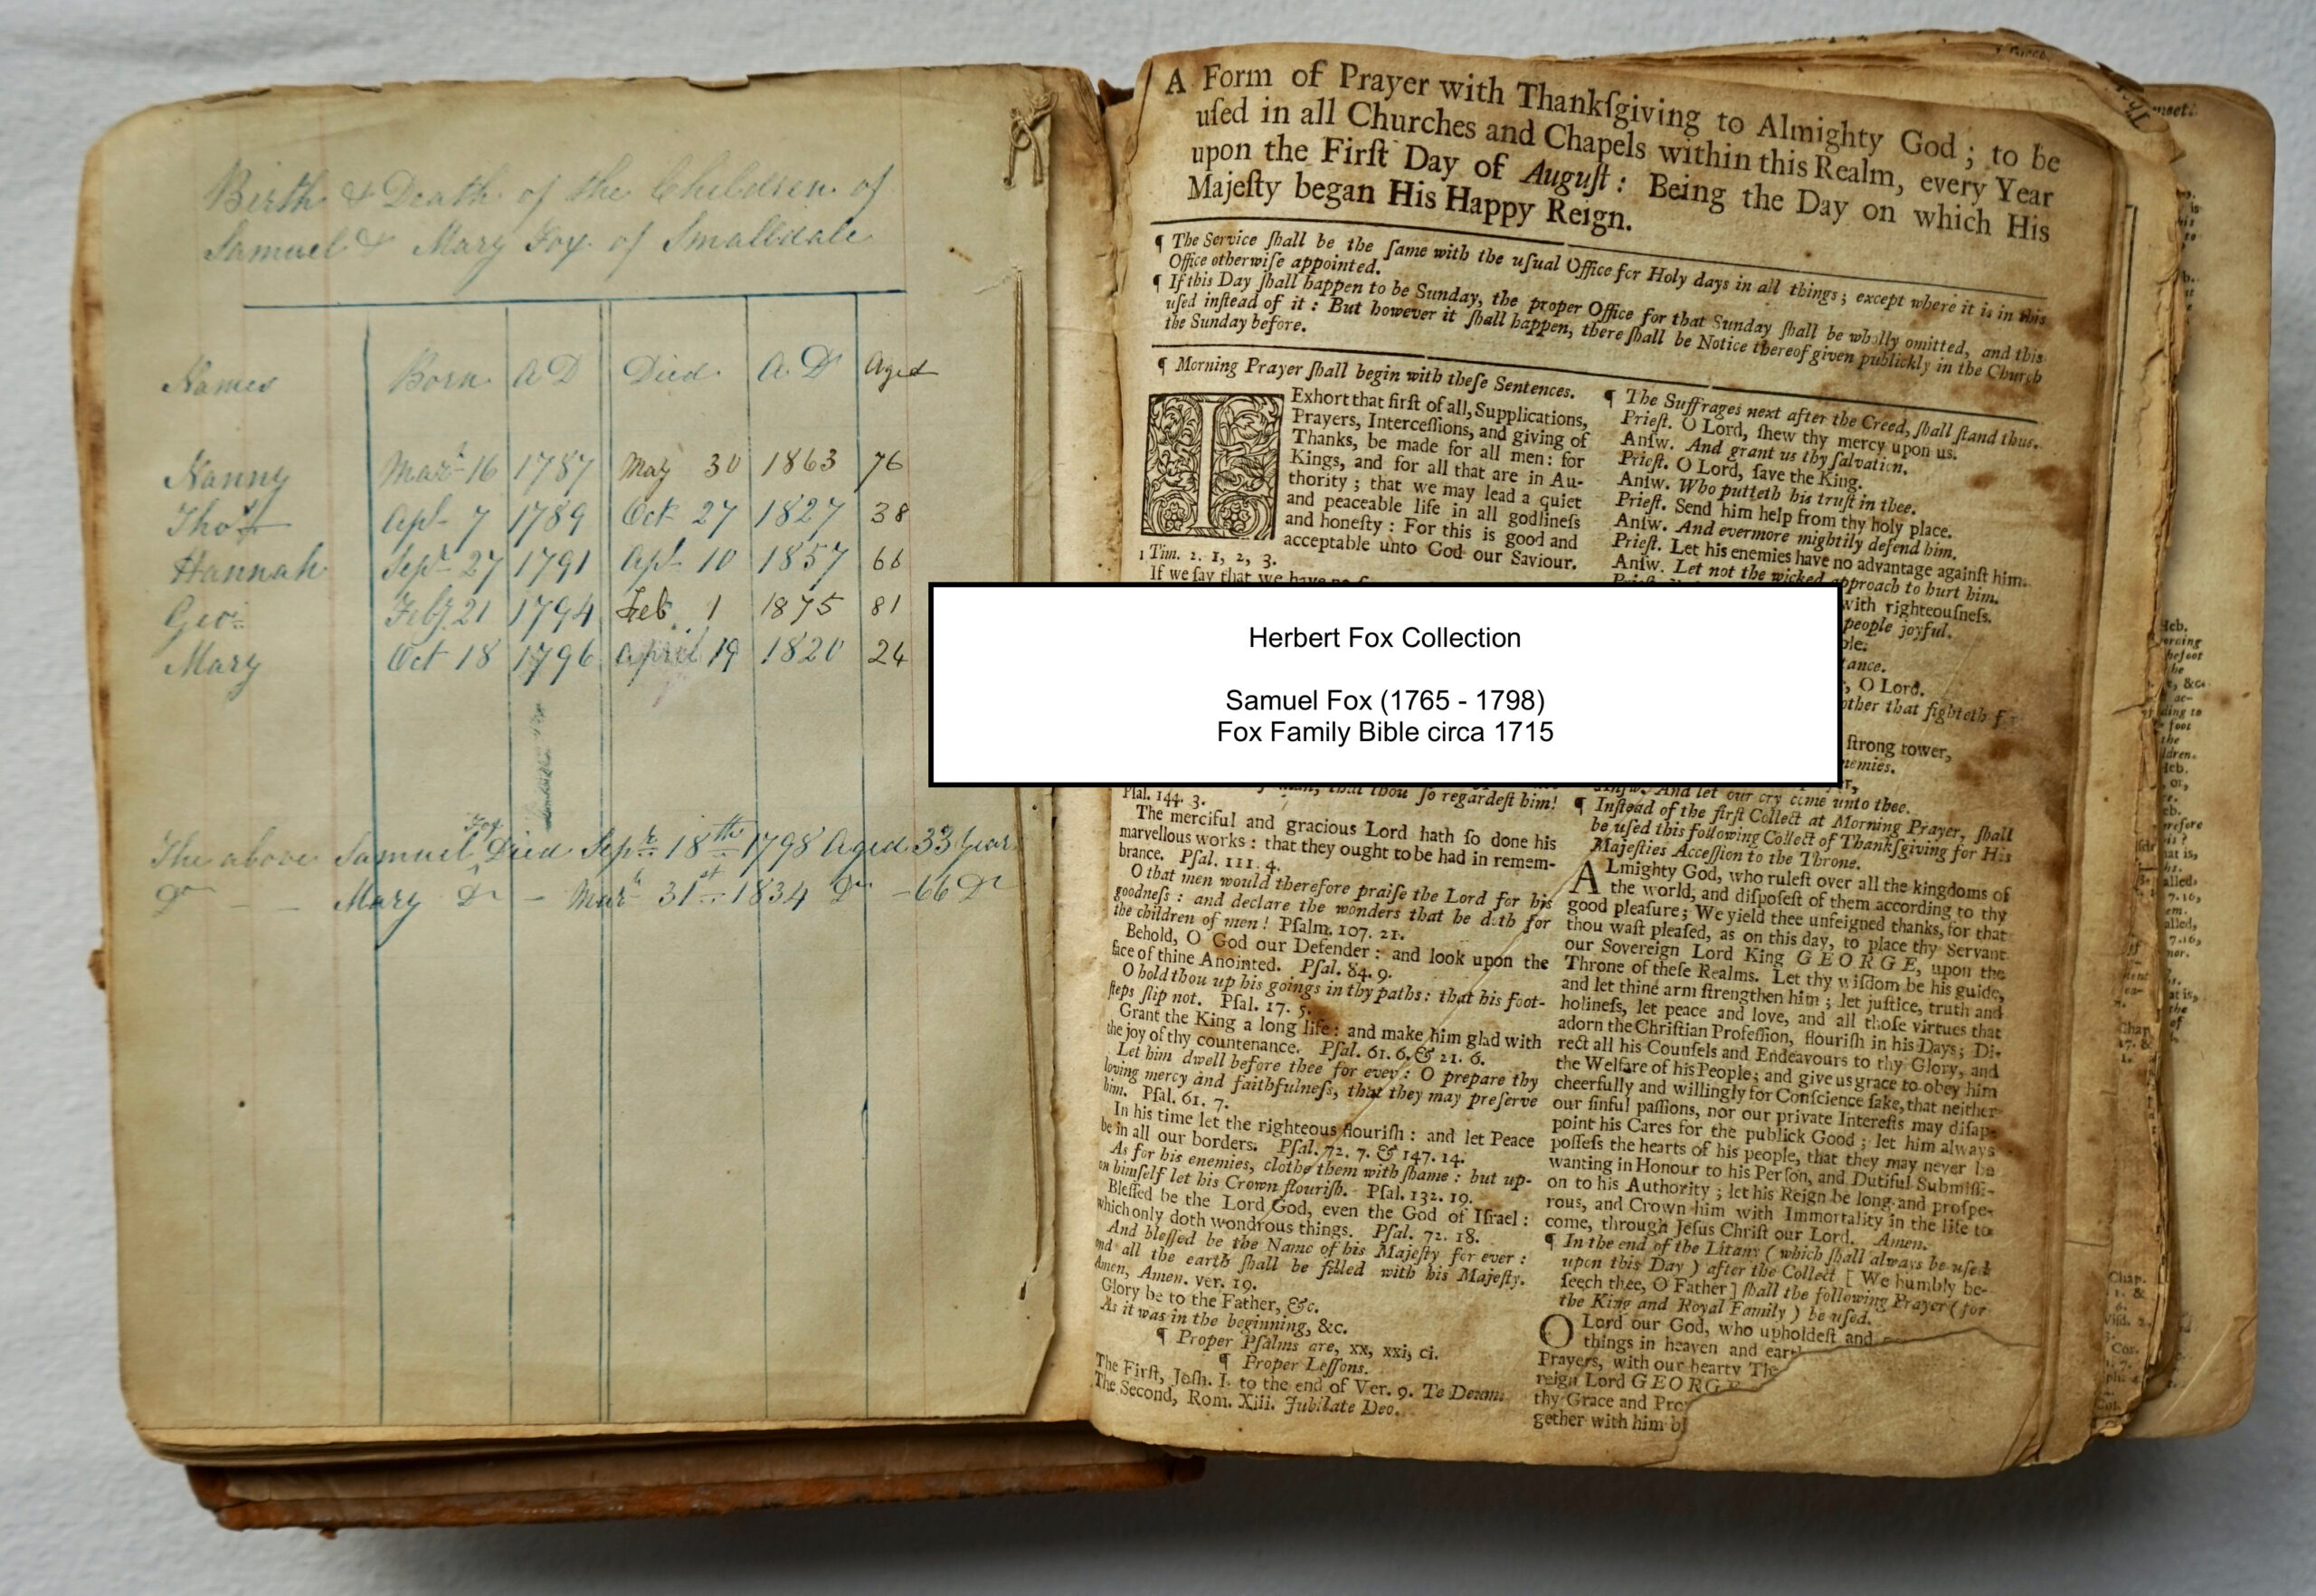 Birth & Death of the Children of
Samuel & Mary Fox of Smalldale
Names Born A D Died A. D Aged
Nanny Mar 16 1787 May 30 1863 76
Thos Apl 7 1789 Oct 27 1827 38
Hannah Sepr 27 1791 Apl 10 1857 66
Geo Feby 21 1794 Feb. 1 1875 81
Mary Oct 18 1796 April 19 1820 24
The above Samuel Fox Died Sepr 18th 1798 Aged 33 Years
Do Mary Do Mar 31st 1834 Do 66 Do
A Form of Prayer with Thankſgiving to Almighty God; to be
uſed in all Churches and Chapels within this Realm, every Year
upon the Firſt Day of Auguſt: Being the Day on which His
Majeſty began His Happy Reign.
¶ The Service ſhall be the ſame with the uſual Office for Holy days in all things; except where it is in this
Office otherwiſe appointed.
¶ If this Day ſhall happen to be Sunday, the proper Office for that Sunday ſhall be wholly omitted, and this
uſed inſtead of it: But however it ſhall happen, there ſhall be Notice thereof given publickly in the Church
the Sunday before.
¶ Morning Prayer ſhall begin with theſe Sentences.
I Exhort that firſt of all, Supplications,
Prayers, Interceſſions, and giving of
Thanks, be made for all men: for
Kings, and for all that are in Au-
thority; that we may lead a quiet
and peaceable life in all godlineſs
and honeſty: For this is good and
acceptable unto God our Saviour.
1 Tim. 2. 1, 2, 3.
If we ſay that we have no
Herbert Fox Collection
Samuel Fox (1765 - 1798)
Fox Family Bible circa 1715
man, that thou ſo regardeſt him!
Pſal. 144. 3.
The merciful and gracious Lord hath ſo done his
marvellous works: that they ought to be had in remem-
brance. Pſal. 111. 4.
O that men would therefore praiſe the Lord for his
goodneſs: and declare the wonders that he doth for
the children of men! Pſalm. 107. 21.
Behold, O God our Defender: and look upon the
face of thine Anointed. Pſal. 84. 9.
O hold thou up his goings in thy paths: that his foot-
ſteps ſlip not. Pſal. 17. 5.
Grant the King a long life: and make him glad with
the joy of thy countenance. Pſal. 61. 6. & 21. 6.
Let him dwell before thee for ever: O prepare thy
loving mercy and faithfulneſs, that they may preſerve
him. Pſal. 61. 7.
In his time let the righteous flouriſh: and let Peace
be in all our borders. Pſal. 72. 7. & 147. 14.
As for his enemies, clothe them with ſhame: but up-
on himſelf let his Crown flouriſh. Pſal. 132. 19.
Bleſſed be the Lord God, even the God of Iſrael:
which only doth wondrous things. Pſal. 72. 18.
And bleſſed be the Name of his Majeſty for ever:
and all the earth ſhall be filled with his Majeſty.
Amen, Amen. ver. 19.
Glory be to the Father, &c.
As it was in the beginning, &c.
¶ Proper Pſalms are, xx, xxi, ci.
¶ Proper Leſſons.
The Firſt, Joſh. I. to the end of Ver. 9. Te Deum.
The Second, Rom. Xiii. Jubilate Deo.
¶ The Suffrages next after the Creed, ſhall ſtand thus.
Prieſt. O Lord, ſhew thy mercy upon us.
Anſw. And grant us thy ſalvation.
Prieſt. O Lord, ſave the King.
Anſw. Who putteth his truſt in thee.
Prieſt. Send him help from thy holy place.
Anſw. And evermore mightily defend him.
Prieſt. Let his enemies have no advantage againſt him.
Anſw. Let not the wicked approach to hurt him.
with righteouſneſs.
people joyful.
O Lord.
other that fighteth
ſtrong tower,
Anſw. And let our cry come unto thee.
¶ Inſtead of the firſt Collect at Morning Prayer, ſhall
be uſed this following Collect of Thankſgiving for His
Majeſties Acceſſion to the Throne.
ALmighty God, who ruleſt over all the kingdoms of
the world, and diſpoſeſt of them according to thy
good pleaſure; We yield thee unfeigned thanks, for that
thou waſt pleaſed, as on this day, to place thy Servant
our Sovereign Lord King GEORGE, upon the
Throne of theſe Realms. Let thy wiſdom be his guide,
and let thine arm ſtrengthen him; let juſtice, truth and
holineſs, let peace and love, and all thoſe virtues that
adorn the Chriſtian Profeſſion, flouriſh in his Days; Di-
rect all his Counſels and Endeavours to thy Glory, and
the Welfare of his People; and give us grace to obey him
cheerfully and willingly for Conſcience ſake, that neither
our ſinful paſſions, nor our private Intereſts may diſap-
point his Cares for the publick Good; let him always
poſſeſs the hearts of his people, that they may never be
wanting in Honour to his Perſon, and Dutiful Submiſſi-
on to his Authority; let his Reign be long and proſpe-
rous, and Crown him with Immortality in the life to
come, through Jeſus Chriſt our Lord. Amen.
¶ In the end of the Litany (which ſhall always be uſed
upon this Day) after the Collect [We humbly be-
ſeech thee, O Father] ſhall the following Prayer (for
the King and Royal Family) be uſed.
O Lord our God, who upholdeſt and
things in heaven and
Prayers, with our hearty
reign Lord GEORGE
thy Grace and
gether with him